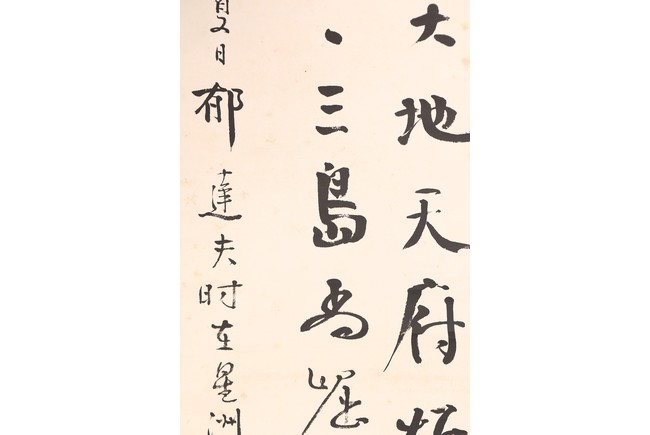 大地天府
三島
夏日郁達夫时在星洲